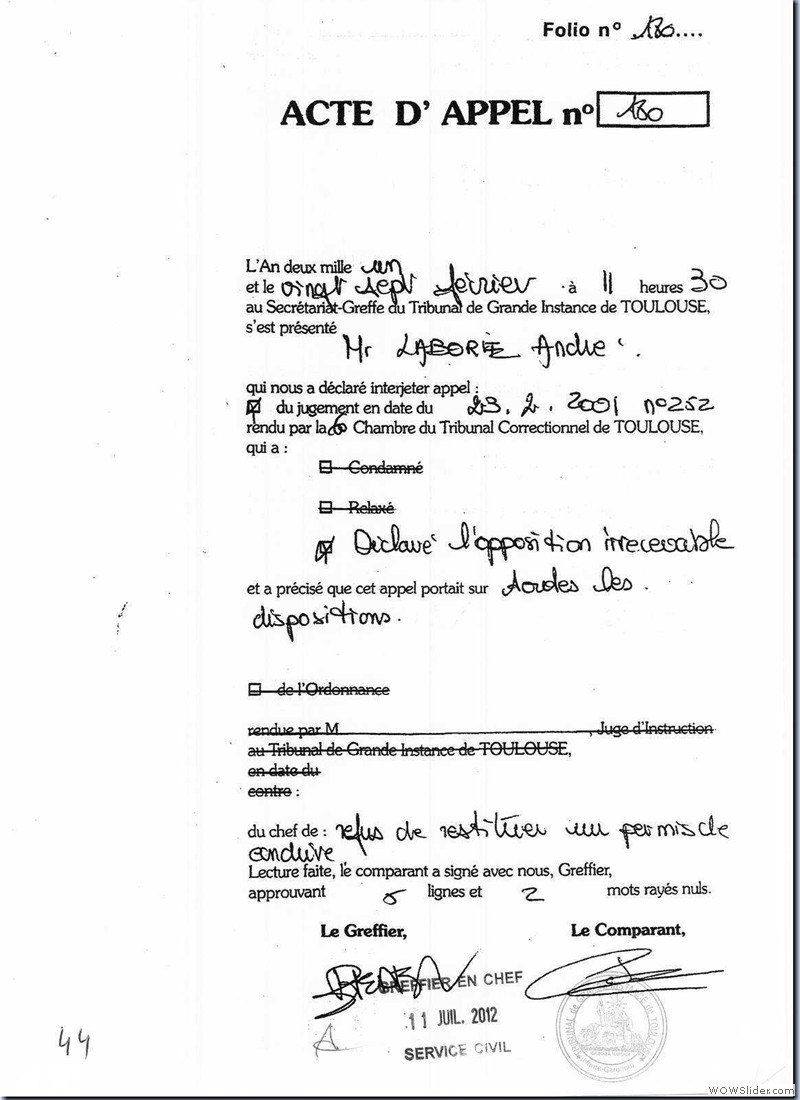 Folio n° 180....
ACTE D' APPEL n° 180
L'An deux mille un
et le vingt sept février à 11 heures 30
au Secrétariat-Greffe du Tribunal de Grande Instance de TOULOUSE,
s'est présenté
Mr LABORIE André.
qui nous a déclaré interjeter appel :
du jugement en date du 23. 2. 2001 n°252
rendu par la 6 Chambre du Tribunal Correctionnel de TOULOUSE,
qui a :
Condamné
Relaxé
Déclaré l'opposition irrecevable
et a précisé que cet appel portait sur toutes les
dispositions.
de l'Ordonnance
rendue par M , Juge d'Instruction
au Tribunal de Grande Instance de TOULOUSE,
en date du
contre :
du chef de : refus de restituer un permis de
conduire
Lecture faite, le comparant a signé avec nous, Greffier,
approuvant 5 lignes et 2 mots rayés nuls.
Le Greffier, Le Comparant,
GREFFIER EN CHEF
11 JUIL. 2012
SERVICE CIVIL
44
WOWSlider.com